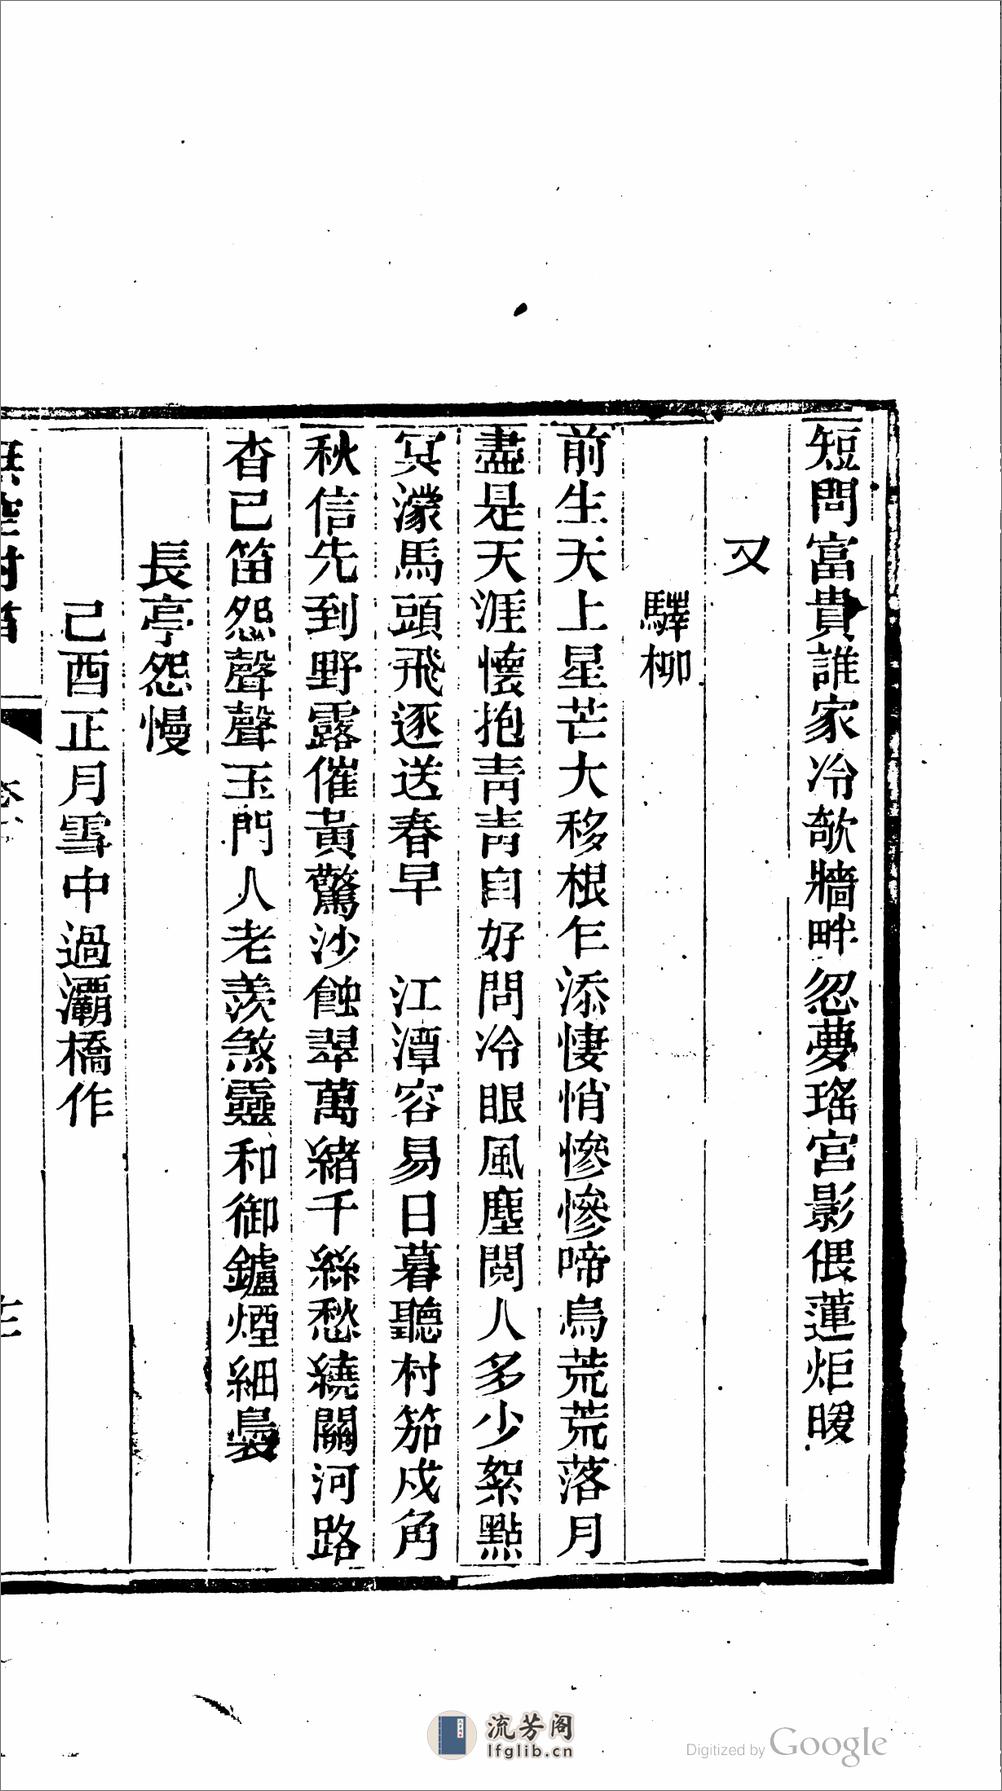 短問富貴誰家冷欹牆畔忽夢瑤宮影偎蓮炬暖
又
驛柳
前生天上星芒大移根乍添悽悄慘慘啼烏荒荒落月
盡是天涯懷抱青青自好問冷眼風塵閱人多少絮點
冥濛馬頭飛逐送春早　江潭容易日暮聽村笳戍角
秋信先到野露催黃驚沙蝕翠萬緒千絲愁繞關河路
杳已笛怨聲聲玉門人老羨煞靈和御鑪煙細裊
長亭怨慢
己酉正月雪中過灞橋作
流芳阁
lfglib.cn
Digitized by Google